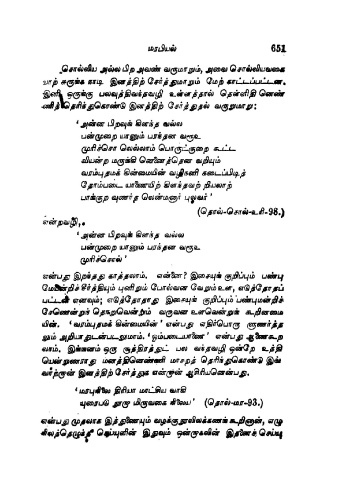 மரபியல் 651
சொல்லிய அல்ல பிற அவண் வருமாறும், அவை சொல்லியவகை
யாற் சுருங்க காடி இனத்திற் சேர்த்துமாறும் மேற் காட்டப்பட்டன.
இனி ஒருங்கு பலவுத்திவந்தவழி உன்னத்தால் தெள்ளிதி னெண்
ணித் தெரித்துகொண்டு இனத்திற் சேர்த்துதல் வருமாறு:
'அன்ன பிறவுங் கிளந்த வல்ல
பன்முறை யானும் பரந்தன வரூஉ
முரிச்சொ லெல்லாம் பொருட்குறை கூட்ட
வியன்ற மருங்கி னெனைத்தென வறியும்
வரம்புதமக் கின்மையின் வழிநனி கடைப்பிடித்
தோம்படை யாணையிற் கிளந்தவற் றியலாற்
பாங்குற வுணர்த லென்மனார் புலவர்'
(தொல்-சொல்-உரி-98.)
என்றவழி,
'அன்ன பிறவுங் கிளந்த வல்ல
பன்முறை யானும் பரந்தன வரூஉ
முரிச்சொல்'
என்பது இறந்தது காத்தலாம். என்னை? இசையுங் குறிப்பும் பண்பு
எனவும்; எடுத்தோதாது இசையுங் குறிப்பும் பண்புமன்றிச்
வருவன உளவென்றுங் கூறினமை
யின். 'வரம்புதமக் கின்மையின்' என்பது எதிர்பொரு ளுணர்த்த
லும் அறியாதுடன்படலுமாம். 'ஓம்படையாணை' என்பது ஆணைகூற
லாம். இங்ஙனம் ஒரு சூத்திரத்துட் பல வந்தவழி ஒன்றே உத்தி
யென்றுணராது மனத்தினெண்ணி மாசறத் தெரிந்துகொண்டு இங்
இனத்திற் சேர்த்துக என்றான் ஆசிரியனென்பது.
'மரபுநிலை திரியா மாட்சிய வாகி
யுரைபடு நூறா மிருவகை நிலைய' (தொல்-மர-93.)
என்பது முதலாக இத்துணையும் வழக்குநூலிலக்கணங் கூறினான், எழு
நிலத்தெழுந்த செய்யுளின் இதுவும் ஒன்றாகலின் இதனைச் செய்யு